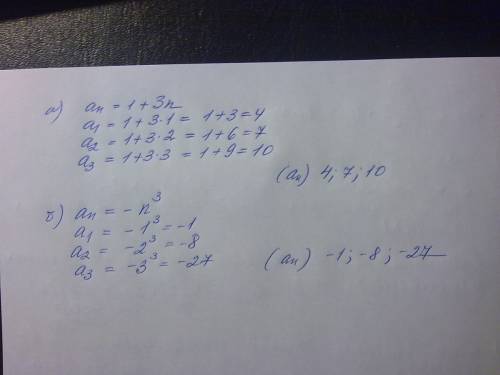 а) aₙ = 1 + 3n
a₁ = 1 + 3·1 = 1 + 3 = 4
a₂ = 1 + 3·2 = 1 + 6 = 7
a₃ = 1 + 3·3 = 1 + 9 = 10
(aₙ) 4; 7; 10
б) aₙ = - n³
a₁ = - 1³ = -1
a₂ = - 2³ = -8
a₃ = - 3³ = -27
(aₙ) -1; -8; -27